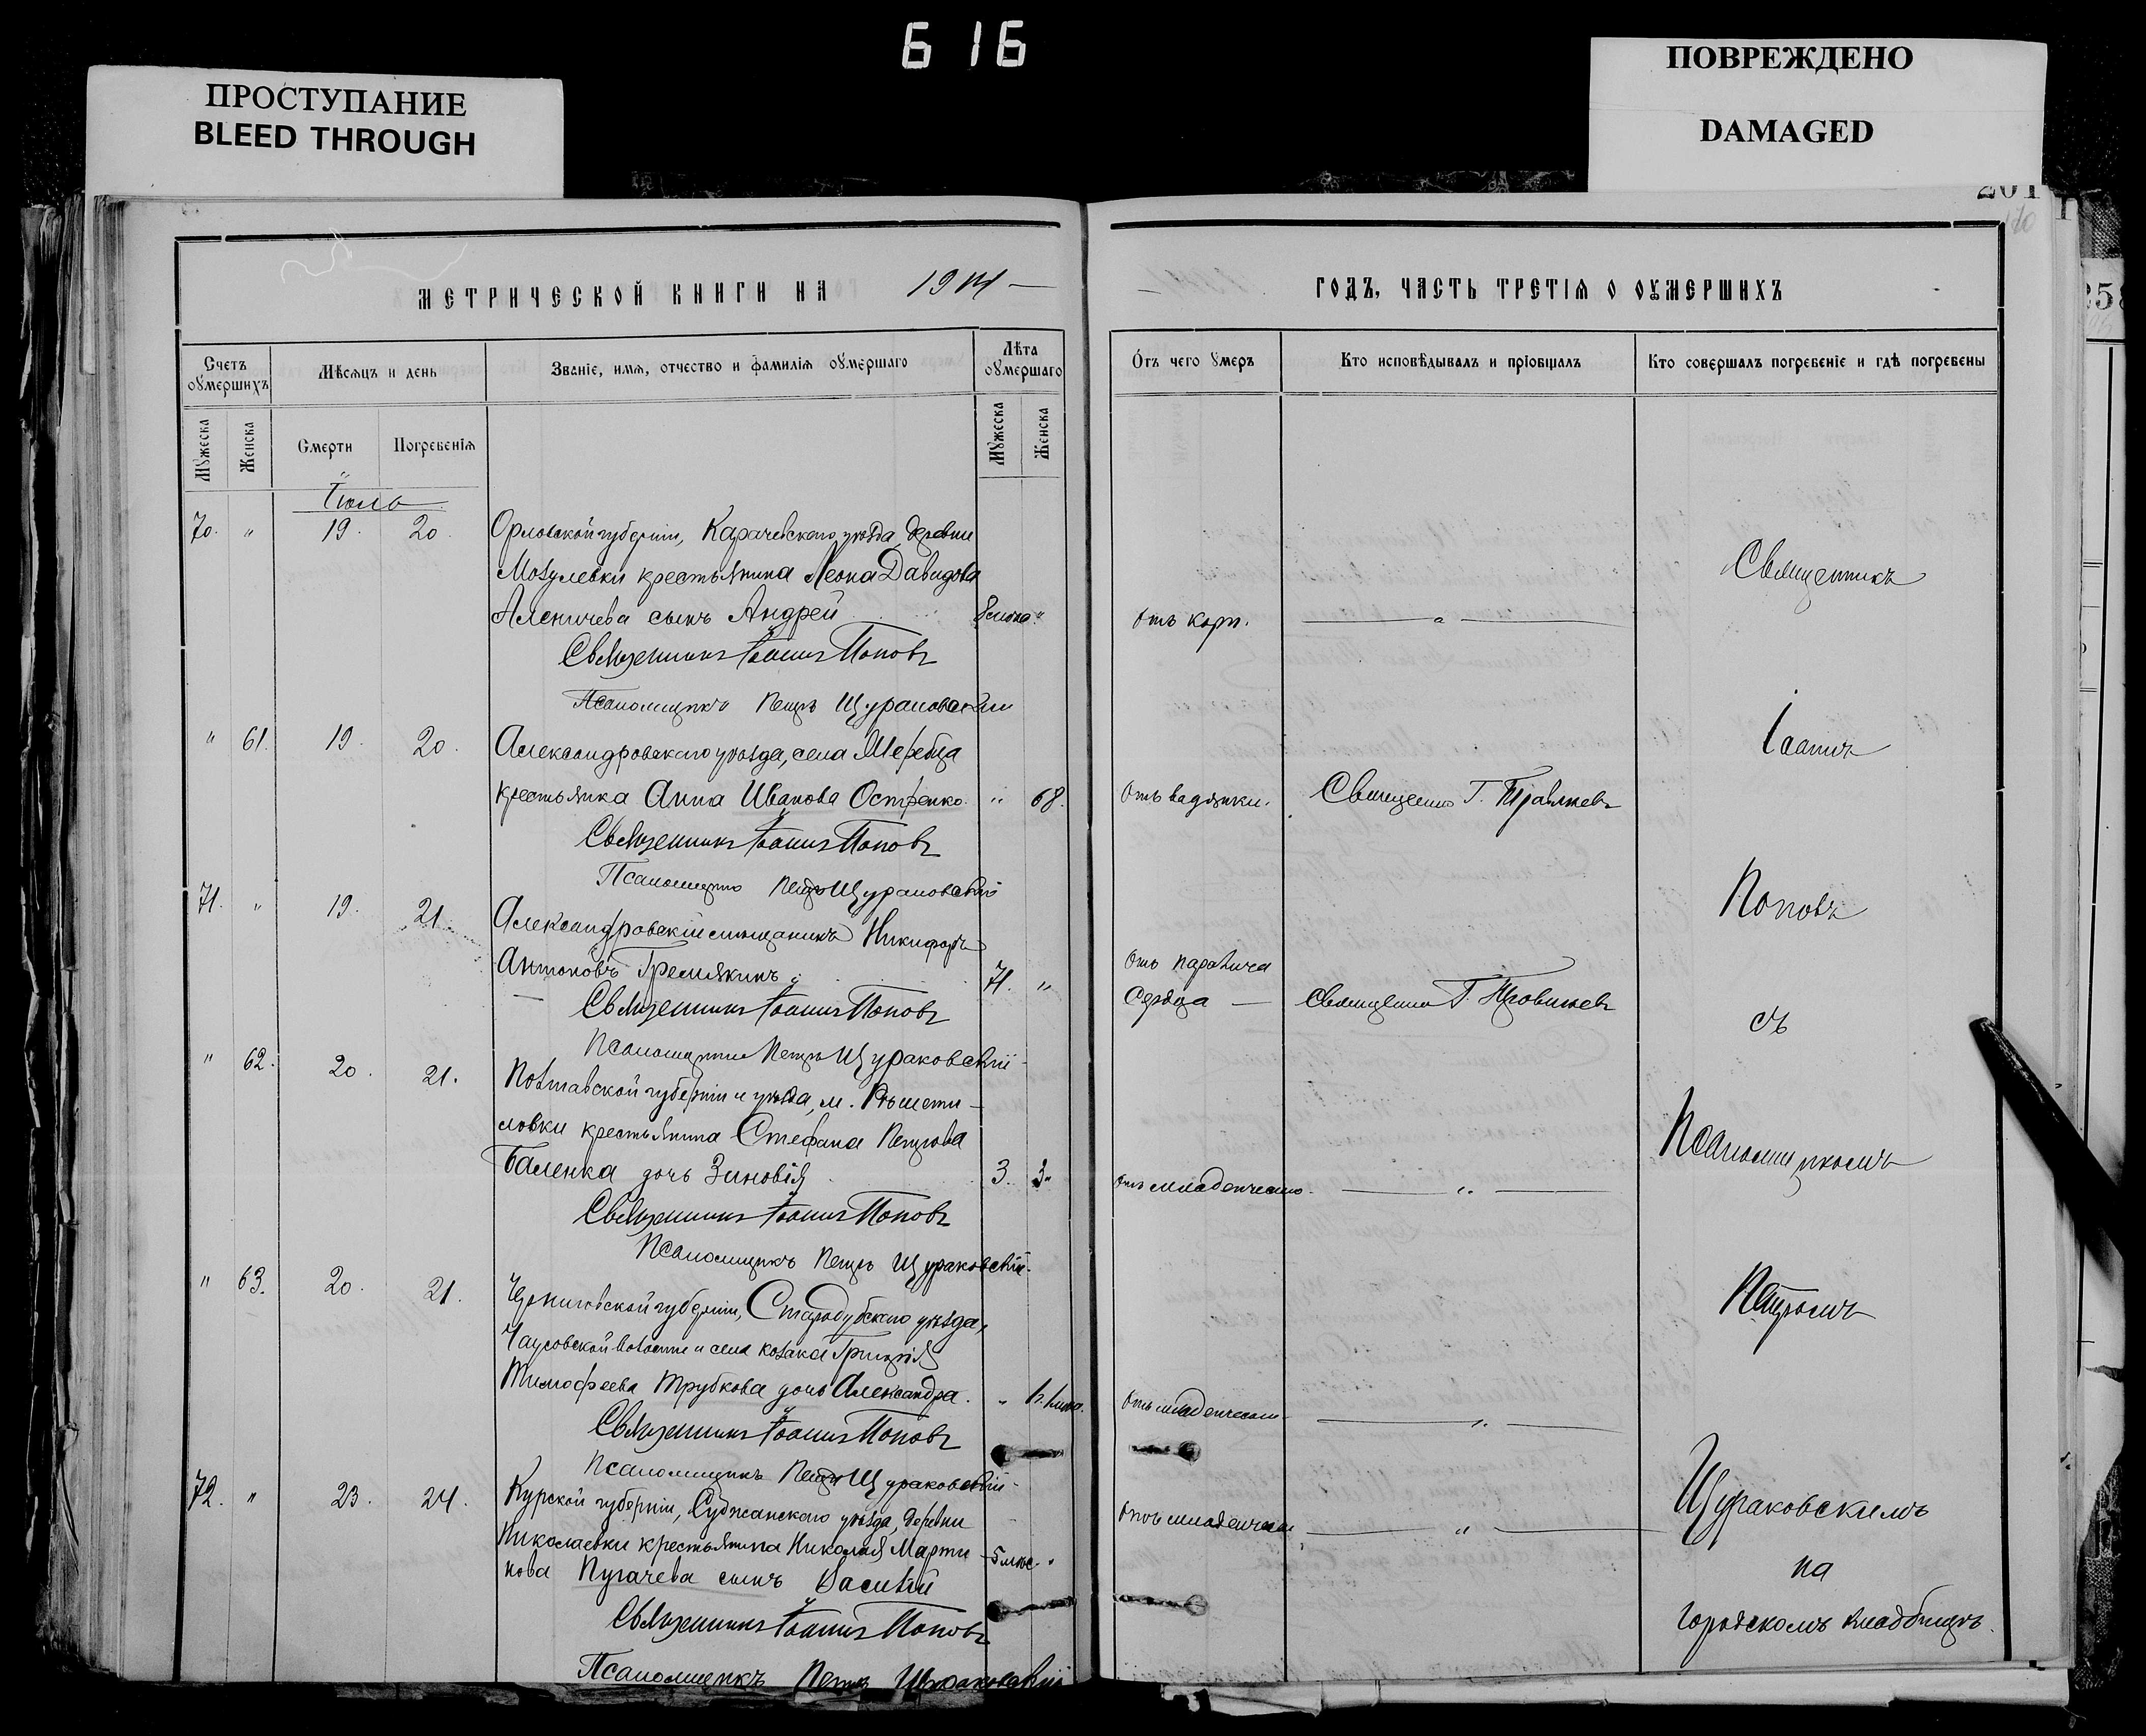 616
ПРОСТУПАНИЕ
BLEED THROUGH
ПОВРЕЖДЕНО
DAMAGED
201
МЕТРИЧЕСКОЙ КНИГИ НА 1914
ГОДЪ, ЧАСТЬ ТРЕТІЯ О ОУМЕРШИХЪ
Счетъ оумершихъ
Мѣсяцъ и день
Званіе, имя, отчество и фамилія оумершаго
Лѣта оумершаго
Отъ чего умеръ
Кто исповѣдывалъ и пріобщалъ
Кто совершалъ погребеніе и гдѣ погребены
Мужеска
Женска
Смерти
Погребенія
Мужеска
Женска
Іюль
70. " 19. 20. Орловской губерніи, Карачевскаго уѣзда, деревни
крестьянина Леона Давидова
Аленичева сынъ Андрей
Отъ кори.
Священникъ Іоаннъ Поповъ
Псаломщикъ Петръ Щураковскій
" 61. 19. 20. Александровскаго уѣзда, села Жеребца
крестьянка Анна Иванова Остренко. " 68. Отъ водянки. Г.
Священникъ Іоаннъ Поповъ
Псаломщикъ Петръ Щураковскій
71. " 19. 21. Александровскій мѣщанинъ Никифоръ
Антоновъ Гремякинъ 71. " Отъ паралича
сердца
Священникъ Іоаннъ Поповъ
Псаломщикъ Петръ Щураковскій
" 62. 20. 21. Полтавской губерніи и уѣзда, м. Рѣшети-
ловки крестьянина Стефана Петрова
Баленка дочь Зиновія 3. Отъ младенческаго
Священникъ Іоаннъ Поповъ
Псаломщикъ Петръ Щураковскій.
" 63. 20. 21. Черниговской губерніи, Стародубскаго уѣзда,
волости и села козака Григорія
Тимофеева Трубкова дочь Александра.
Отъ младенческ.
Священникъ Іоаннъ Поповъ
Псаломщикъ Петръ Щураковскій
72. " 23. 24. Курской губерніи, Суджанскаго уѣзда, деревни
Николаевки крестьянина Николая Марти
нова Пугачева сынъ Василій
5 мѣс. "
Отъ младенческ
Священникъ Іоаннъ Поповъ
Псаломщикъ Петръ Щураковскій
Священникъ
Іоаннъ
Поповъ
съ
Псаломщикомъ
Петромъ
Щураковскимъ
на
городскомъ кладбищѣ.